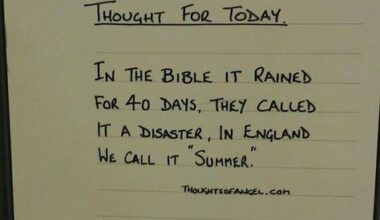 THOUGHT FOR TODAY.
IN THE BIBLE IT RAINED
FOR 40 DAYS, THEY CALLED
IT A DISASTER, IN ENGLAND
WE CALL IT "SUMMER."
THOUGHTSOFANGEL.COM